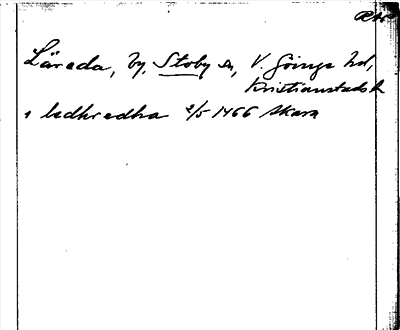 Läreda, by, Stoby sn, V. Göinge hd,
Kristianstads l
i ledhredha 2/5 1466 Skara